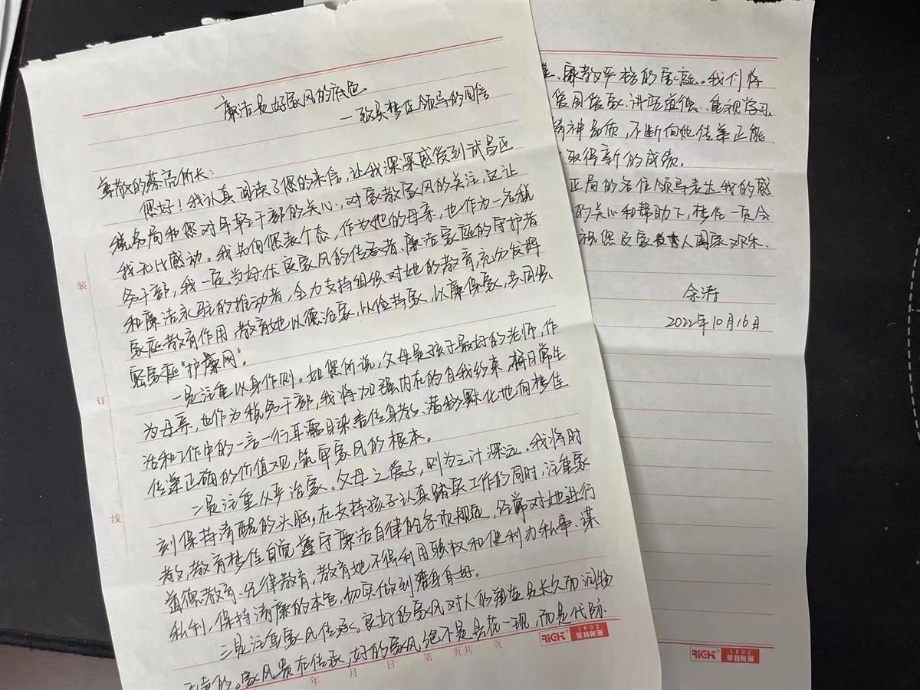 廉洁是好家风的底色
——致吴梦佳领导的回信
尊敬的蔡高所长：
您好！我认真阅读了您的来信，让我深深感受到武昌区
税务局和您对年轻干部的关心，对家教家风的关注，足让
我无比感动。我先向您表个态，作为她的母亲，也作为一名税
务干部，我一定当好优良家风的传承者、廉洁家庭的守护者
和廉洁永驻的推动者，全力支持组织对她的教育，充分发挥
家庭教育作用，教育她以德治家，以俭持家，以廉保家，共同织
紧家庭"护廉网"。
一是注重以身作则。如您所说，父母是孩子最好的老师，作
为母亲，也作为税务干部，我将加强内在的自我约束，将日常生
活和工作中的一言一行耳濡目染言传身教，潜移默化地向梦佳
传递正确的价值观，筑牢家风的根本。
二是注重从严治家。父母之爱子，则为之计深远。我将时
刻保持清醒的头脑，在支持孩子认真踏实工作的同时，注重家
教，教育梦佳自觉遵守廉洁自律的各项规定，经常对她进行
道德教育、纪律教育，教育她不得利用职权和便利办私事、谋
私利，保持清廉的本色，切实做到洁身自好。
三是注重家风传承。良好的家风对人的塑造是长久而润物
的。家风贵在传承，好的家风绝不是昙花一现，而是代际
装
订
线
年 月 日 第 页共 页
RiCH 1602
、廉教严格的家庭。我们将
爱国爱家、讲医道德、重视学习
精神品质，不断向她传递正能
取得新的成绩。
正局的各位领导表达我的感
的关心和帮助下，梦佳一定会
祝您及家人阖家欢乐。
余涛
2022年10月16日
RiCH 1602